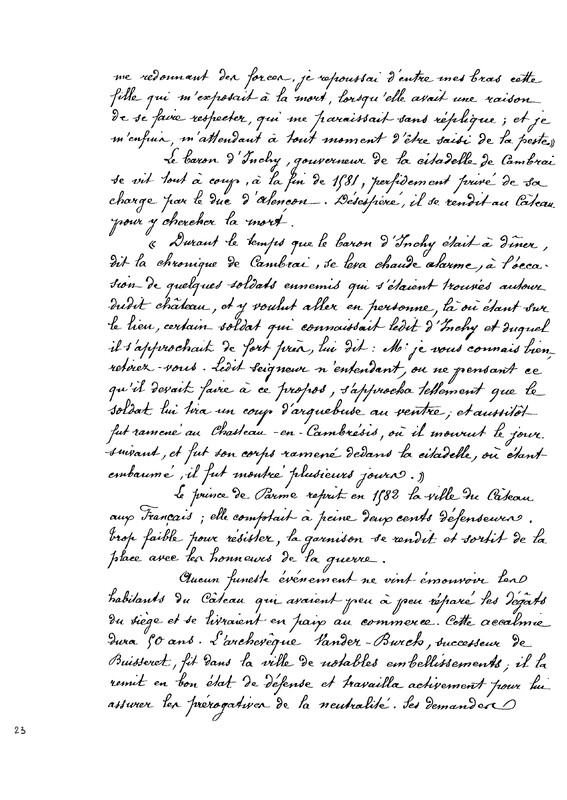 me redonnant des forces, je repoussai d'entre mes bras cette
fille qui m'exposait à la mort, lorsqu'elle avait une raison
de se faire respecter, qui me paraissait sans réplique ; et je
m'enfuis, m'attendant à tout moment d'être saisi de la peste »
Le baron d'Inchy, gouverneur de la citadelle de Cambrai
se vit tout à coup, à la fin de 1581, perfidement privé de sa
charge par le duc d'alençon. Désespéré, il se rendit au Câteau
pour y chercher la mort.
« Durant le temps que le baron d'Inchy était à dîner,
dit la chronique de Cambrai, se leva chaude alarme, à l'occa-
sion de quelques soldats ennemis qui s'étaient trouvés autour
dudit château, et y voulut aller en personne, là où étant sur
le lieu, certain soldat qui connaissait ledit d'Inchy et duquel
il s'approchait de fort près, lui dit : Mr je vous connais bien,
retirer-vous. Ledit seigneur n'entendant, ou ne pensant ce
qu'il devait faire à ce propos, s'approcha tellement que le
soldat lui tira un coup d'arquebuse au ventre ; et aussitôt
fut ramené au Chasteau-en-Cambrésis, où il mourut le jour
suivant, et fut son corps ramené dedans la citadelle, où étant
embaumé, il fut montré plusieurs jours. »
Le prince de Parme reprit en 1582 la ville du Câteau
aux Français ; elle comptait à peine deux cents défenseurs.
Trop faible pour résister, la garnison se rendit et sortit de la
place avec les honneurs de la guerre.
Aucun funeste événement ne vint émouvoir les
habitants du Câteau qui avaient peu à peu réparé les dégâts
du siège et se livraient en paix au commerce. Cette accalmie
dura 50 ans. L'archevêque Vander-Burch, successeur de
Buisseret, fit dans la ville de notables embellissements ; il la
remit en bon état de défense et travailla activement pour lui
assurer les prérogatives de la neutralité. Ses demandes
23